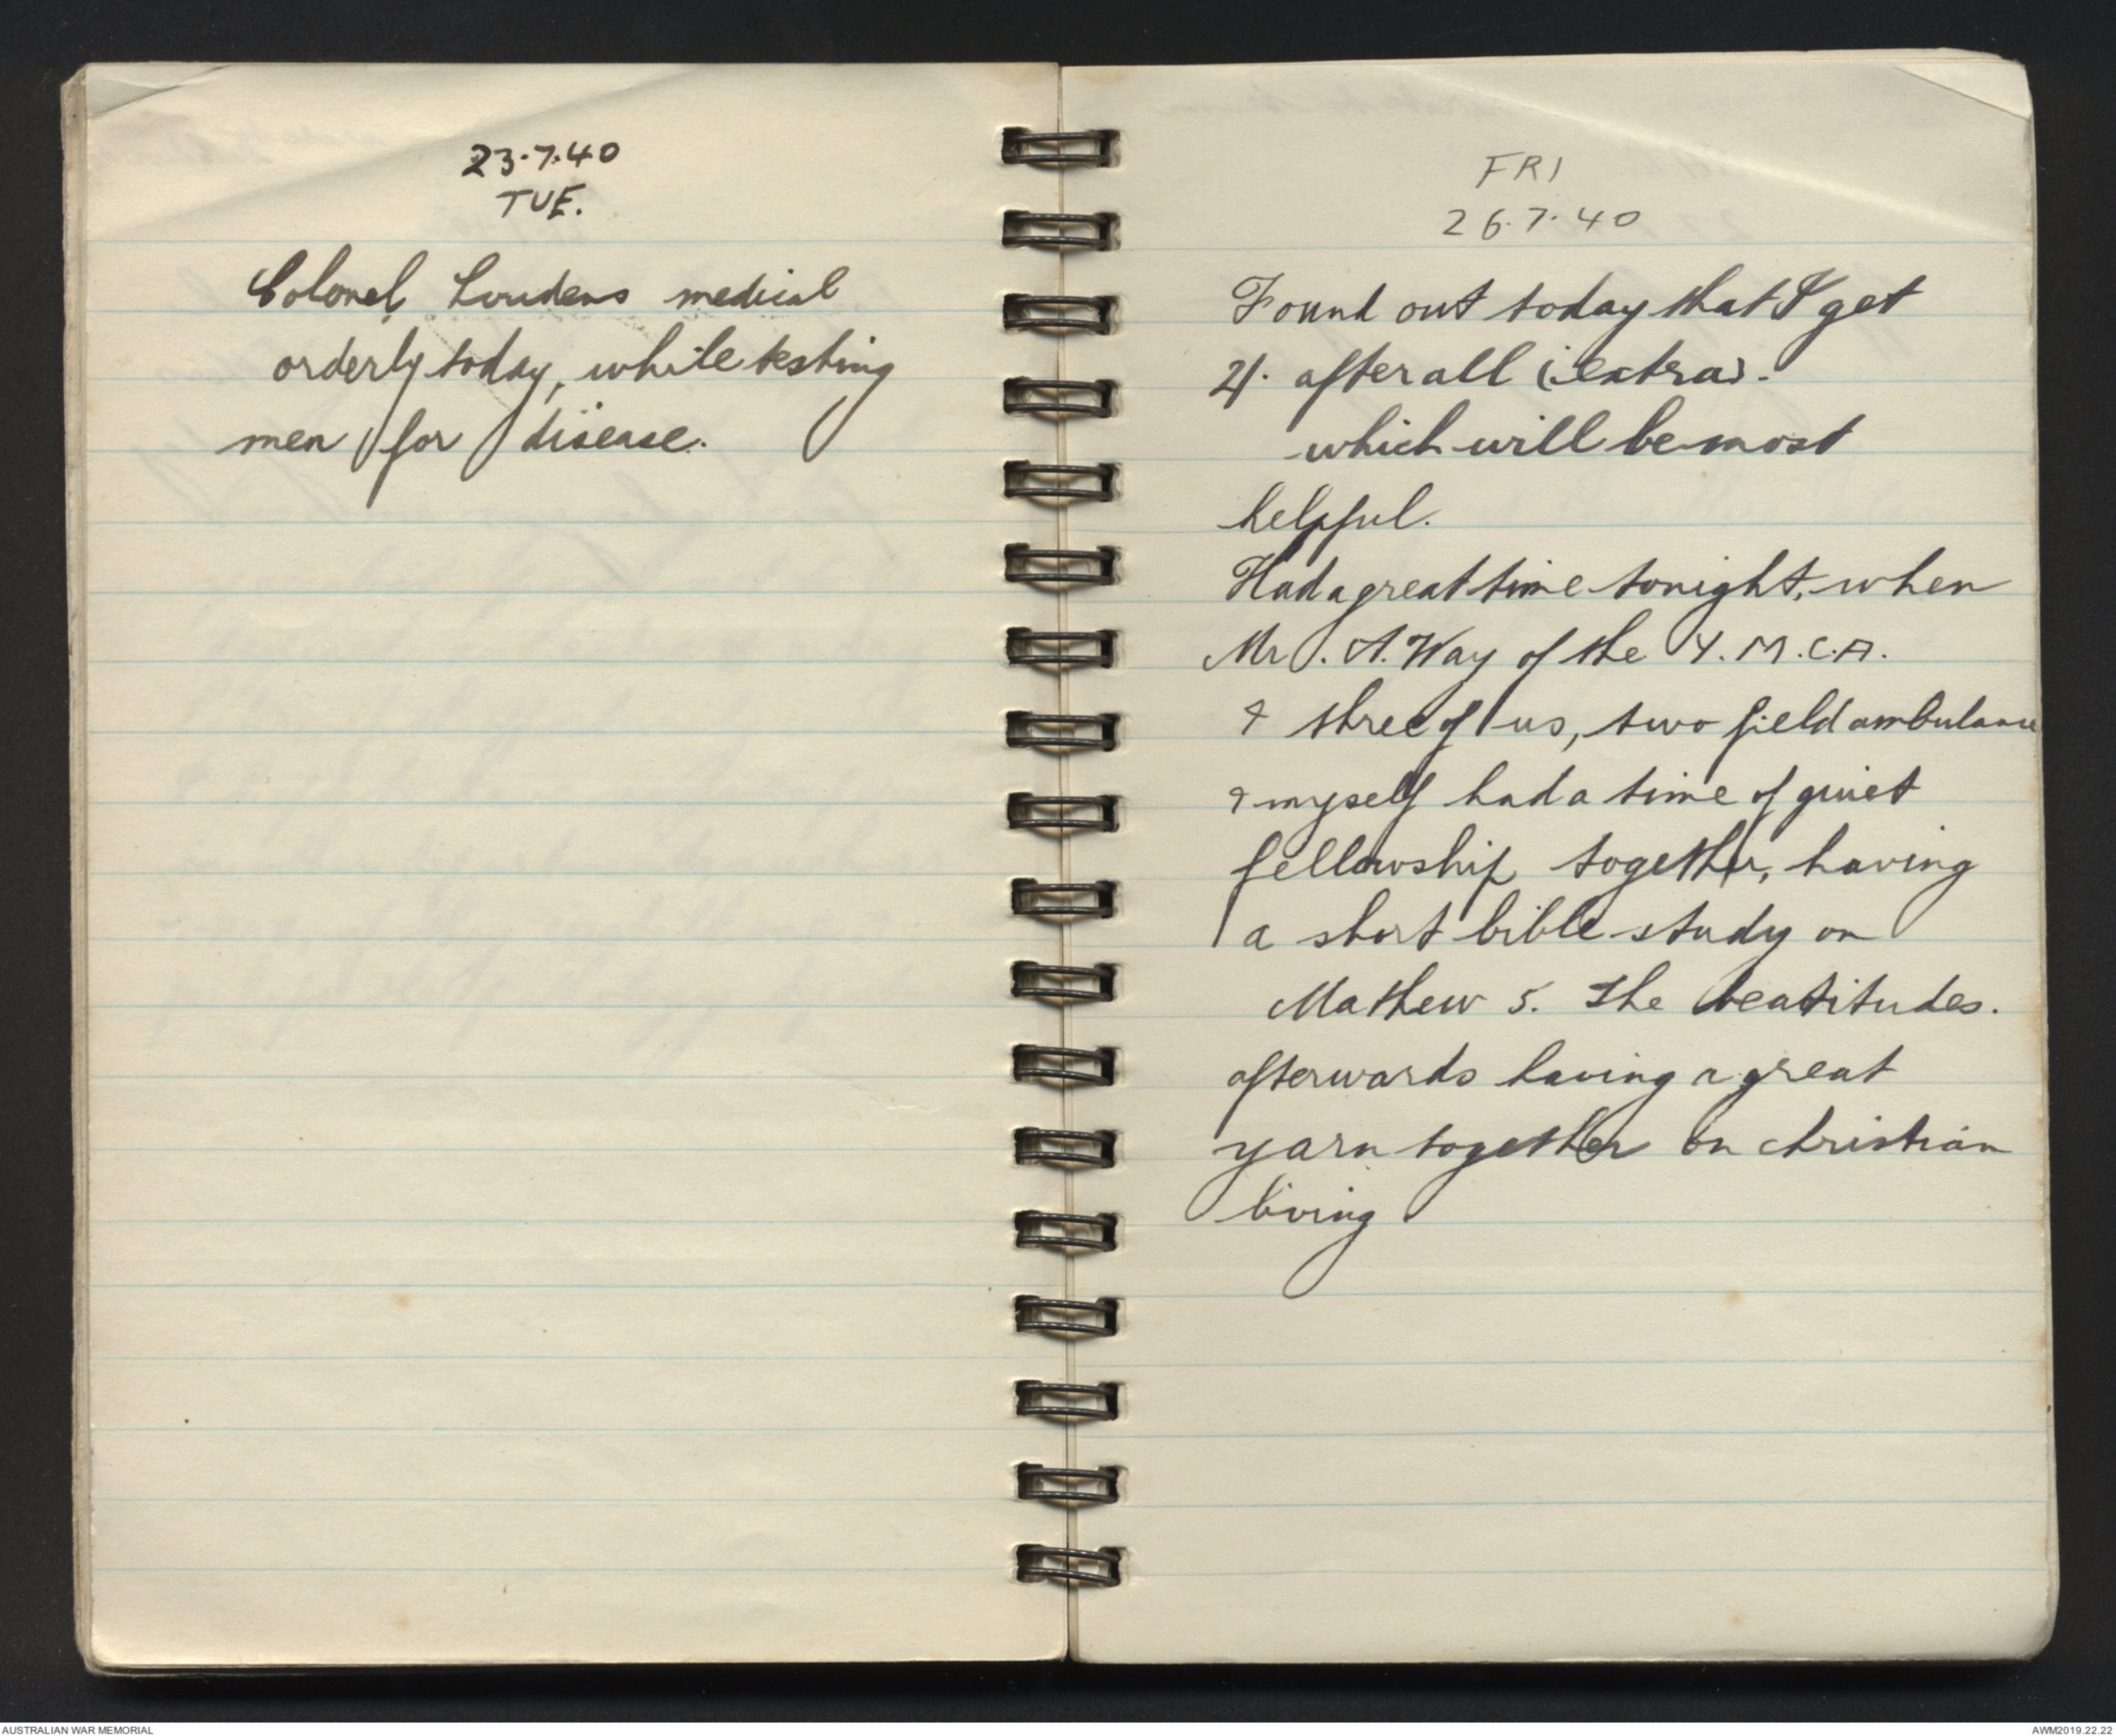 23.7.40
TUE.
Colonel Loudens medical
orderly today, while testing
men for disease.
FRI
26.7.40
Found out today that I get
2/. after all (extra).
which will be most
helpful.
Had a great time tonight, when
Mr. A. Way of the Y.M.C.A.
& three of us, two field ambulance
& myself had a time of quiet
fellowship together, having
a short bible study on
Mathew 5. The beatitudes.
afterwards having a great
yarn together on christian
living
AUSTRALIAN WAR MEMORIAL
AWM2019.22.22